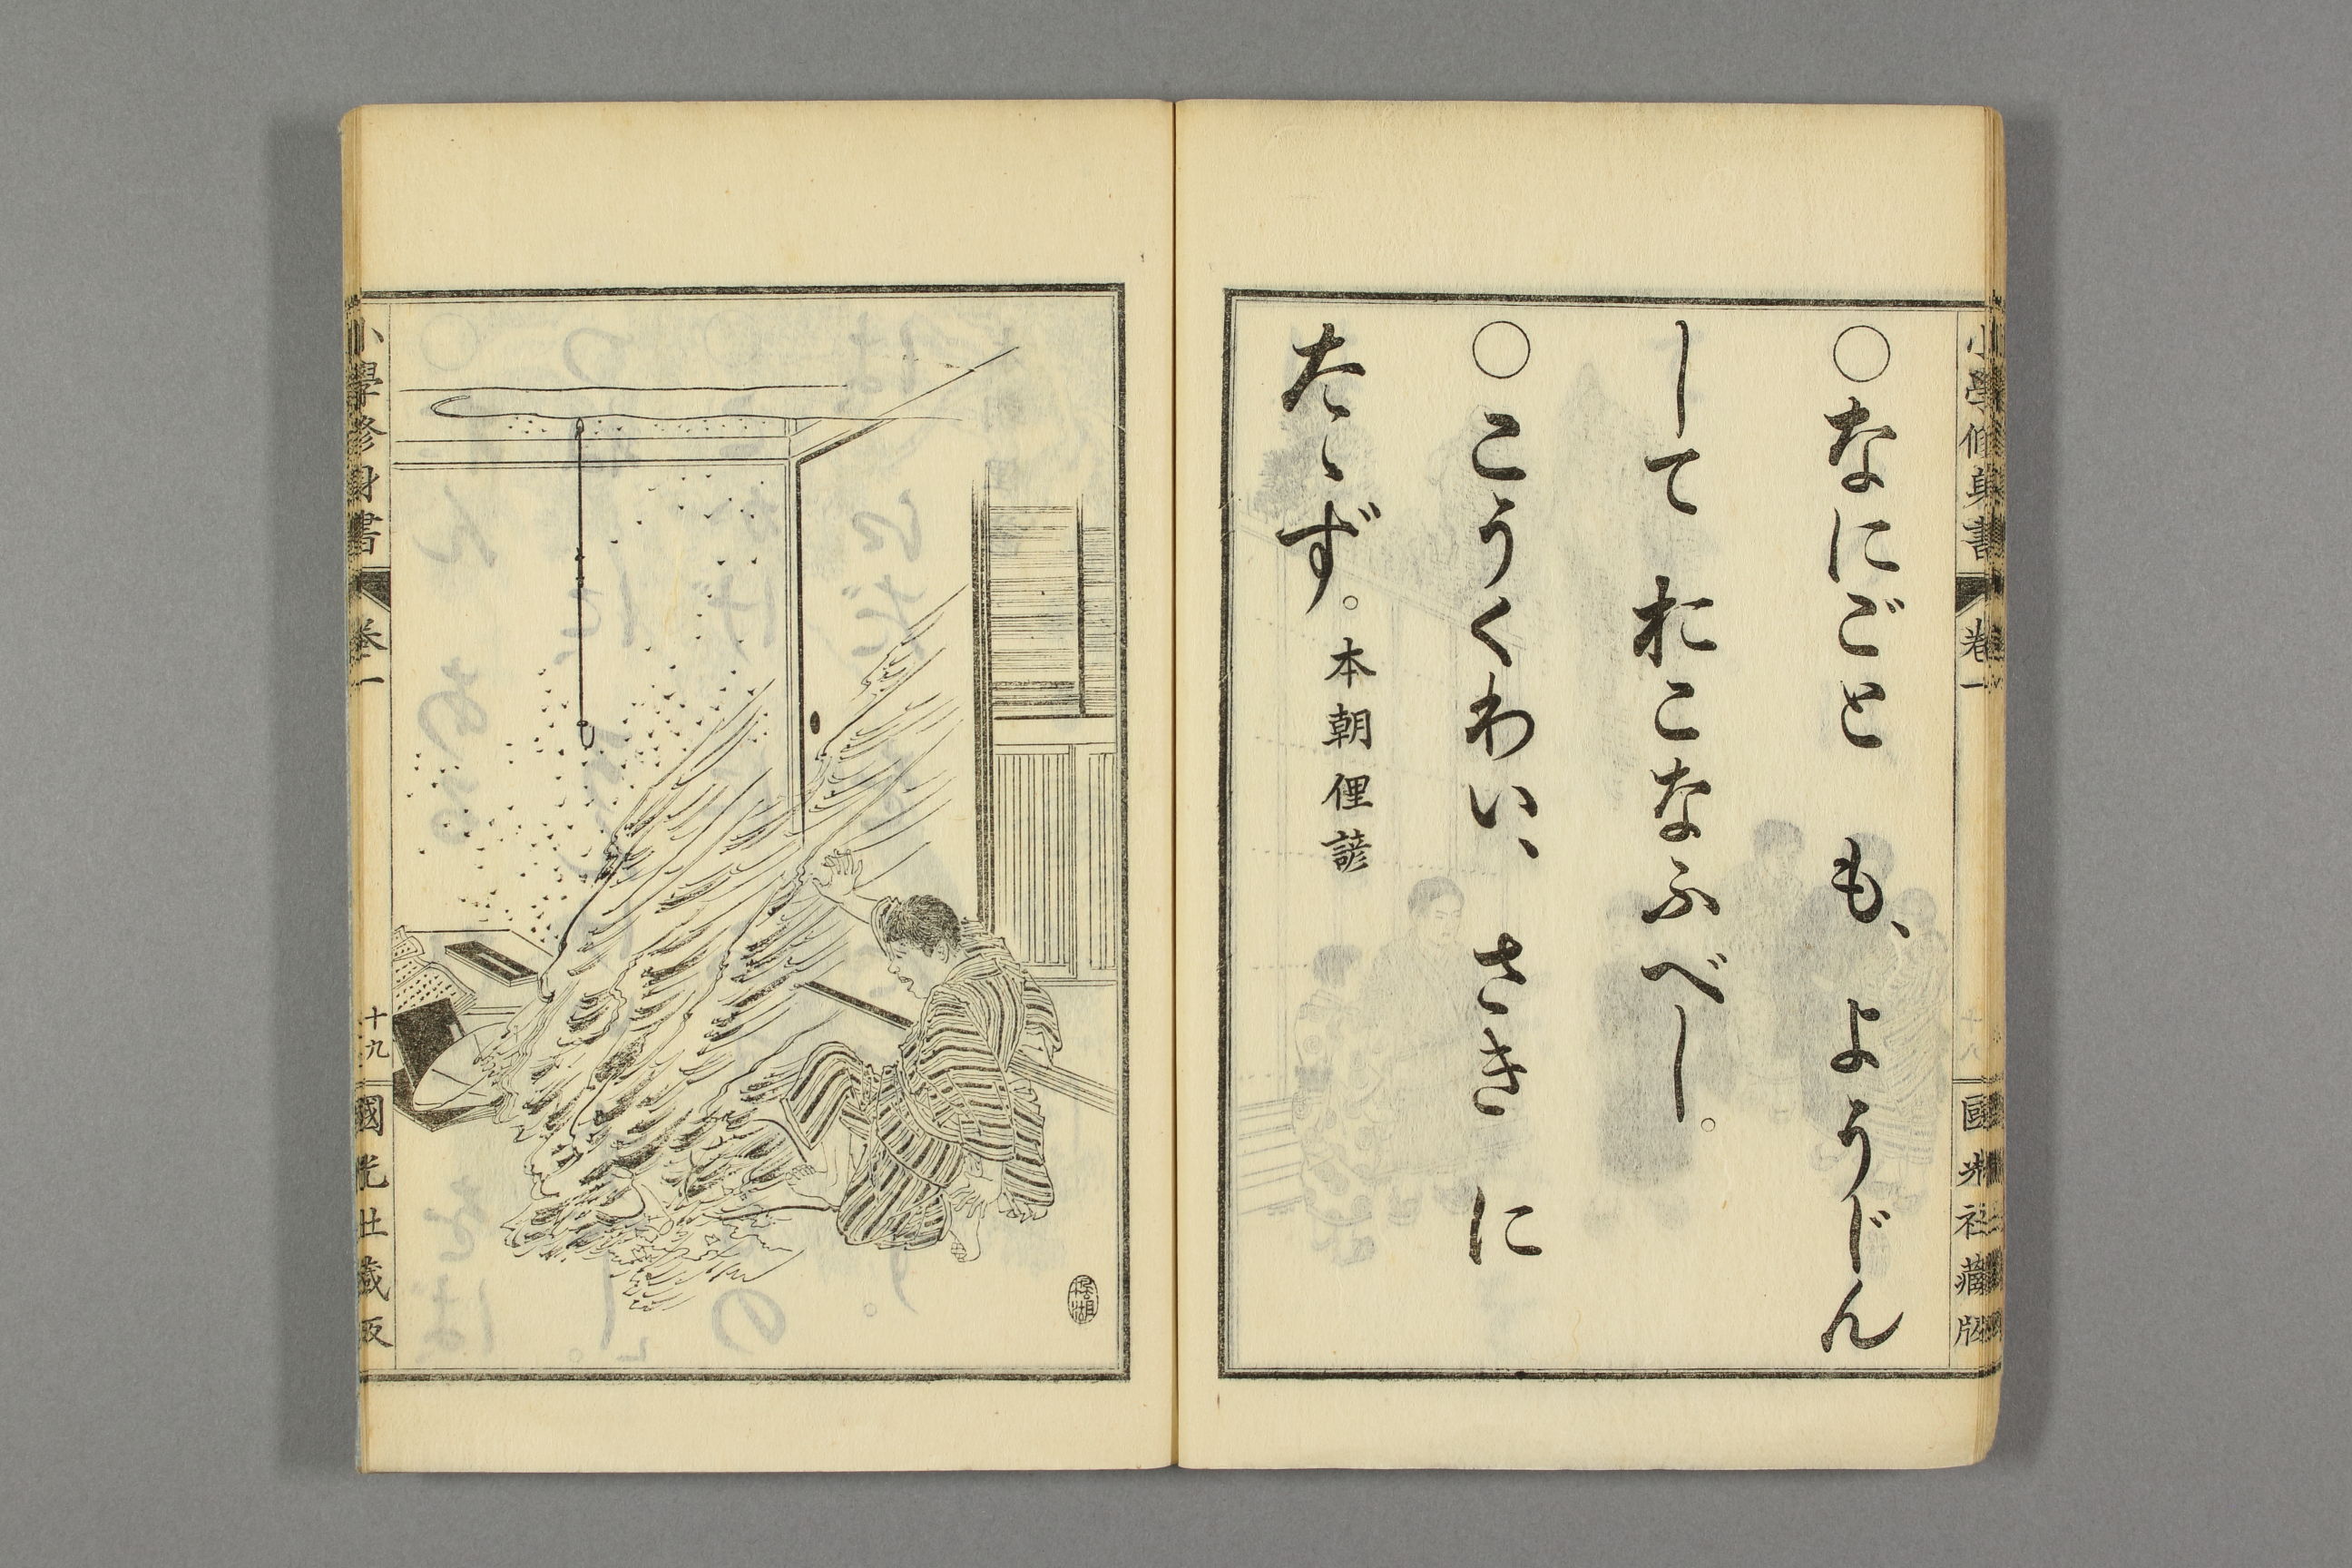 小學修身書 卷一 十八 國光社藏版
○なにごと も、 ようじん
して おこなふべし。
○こうくわい、 さき に
たゝず。 本朝俚諺
小學修身書 卷一 十九 國光社藏版